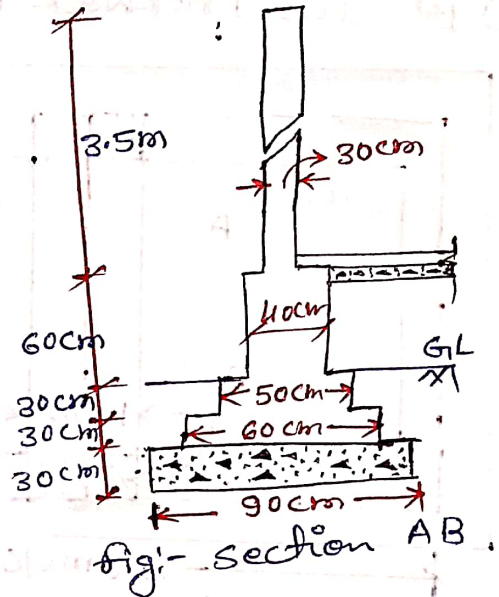 3.5m
30cm
40cm
60cm
GL
30cm
50cm
30cm
60cm
30cm
90cm
fig:- section AB